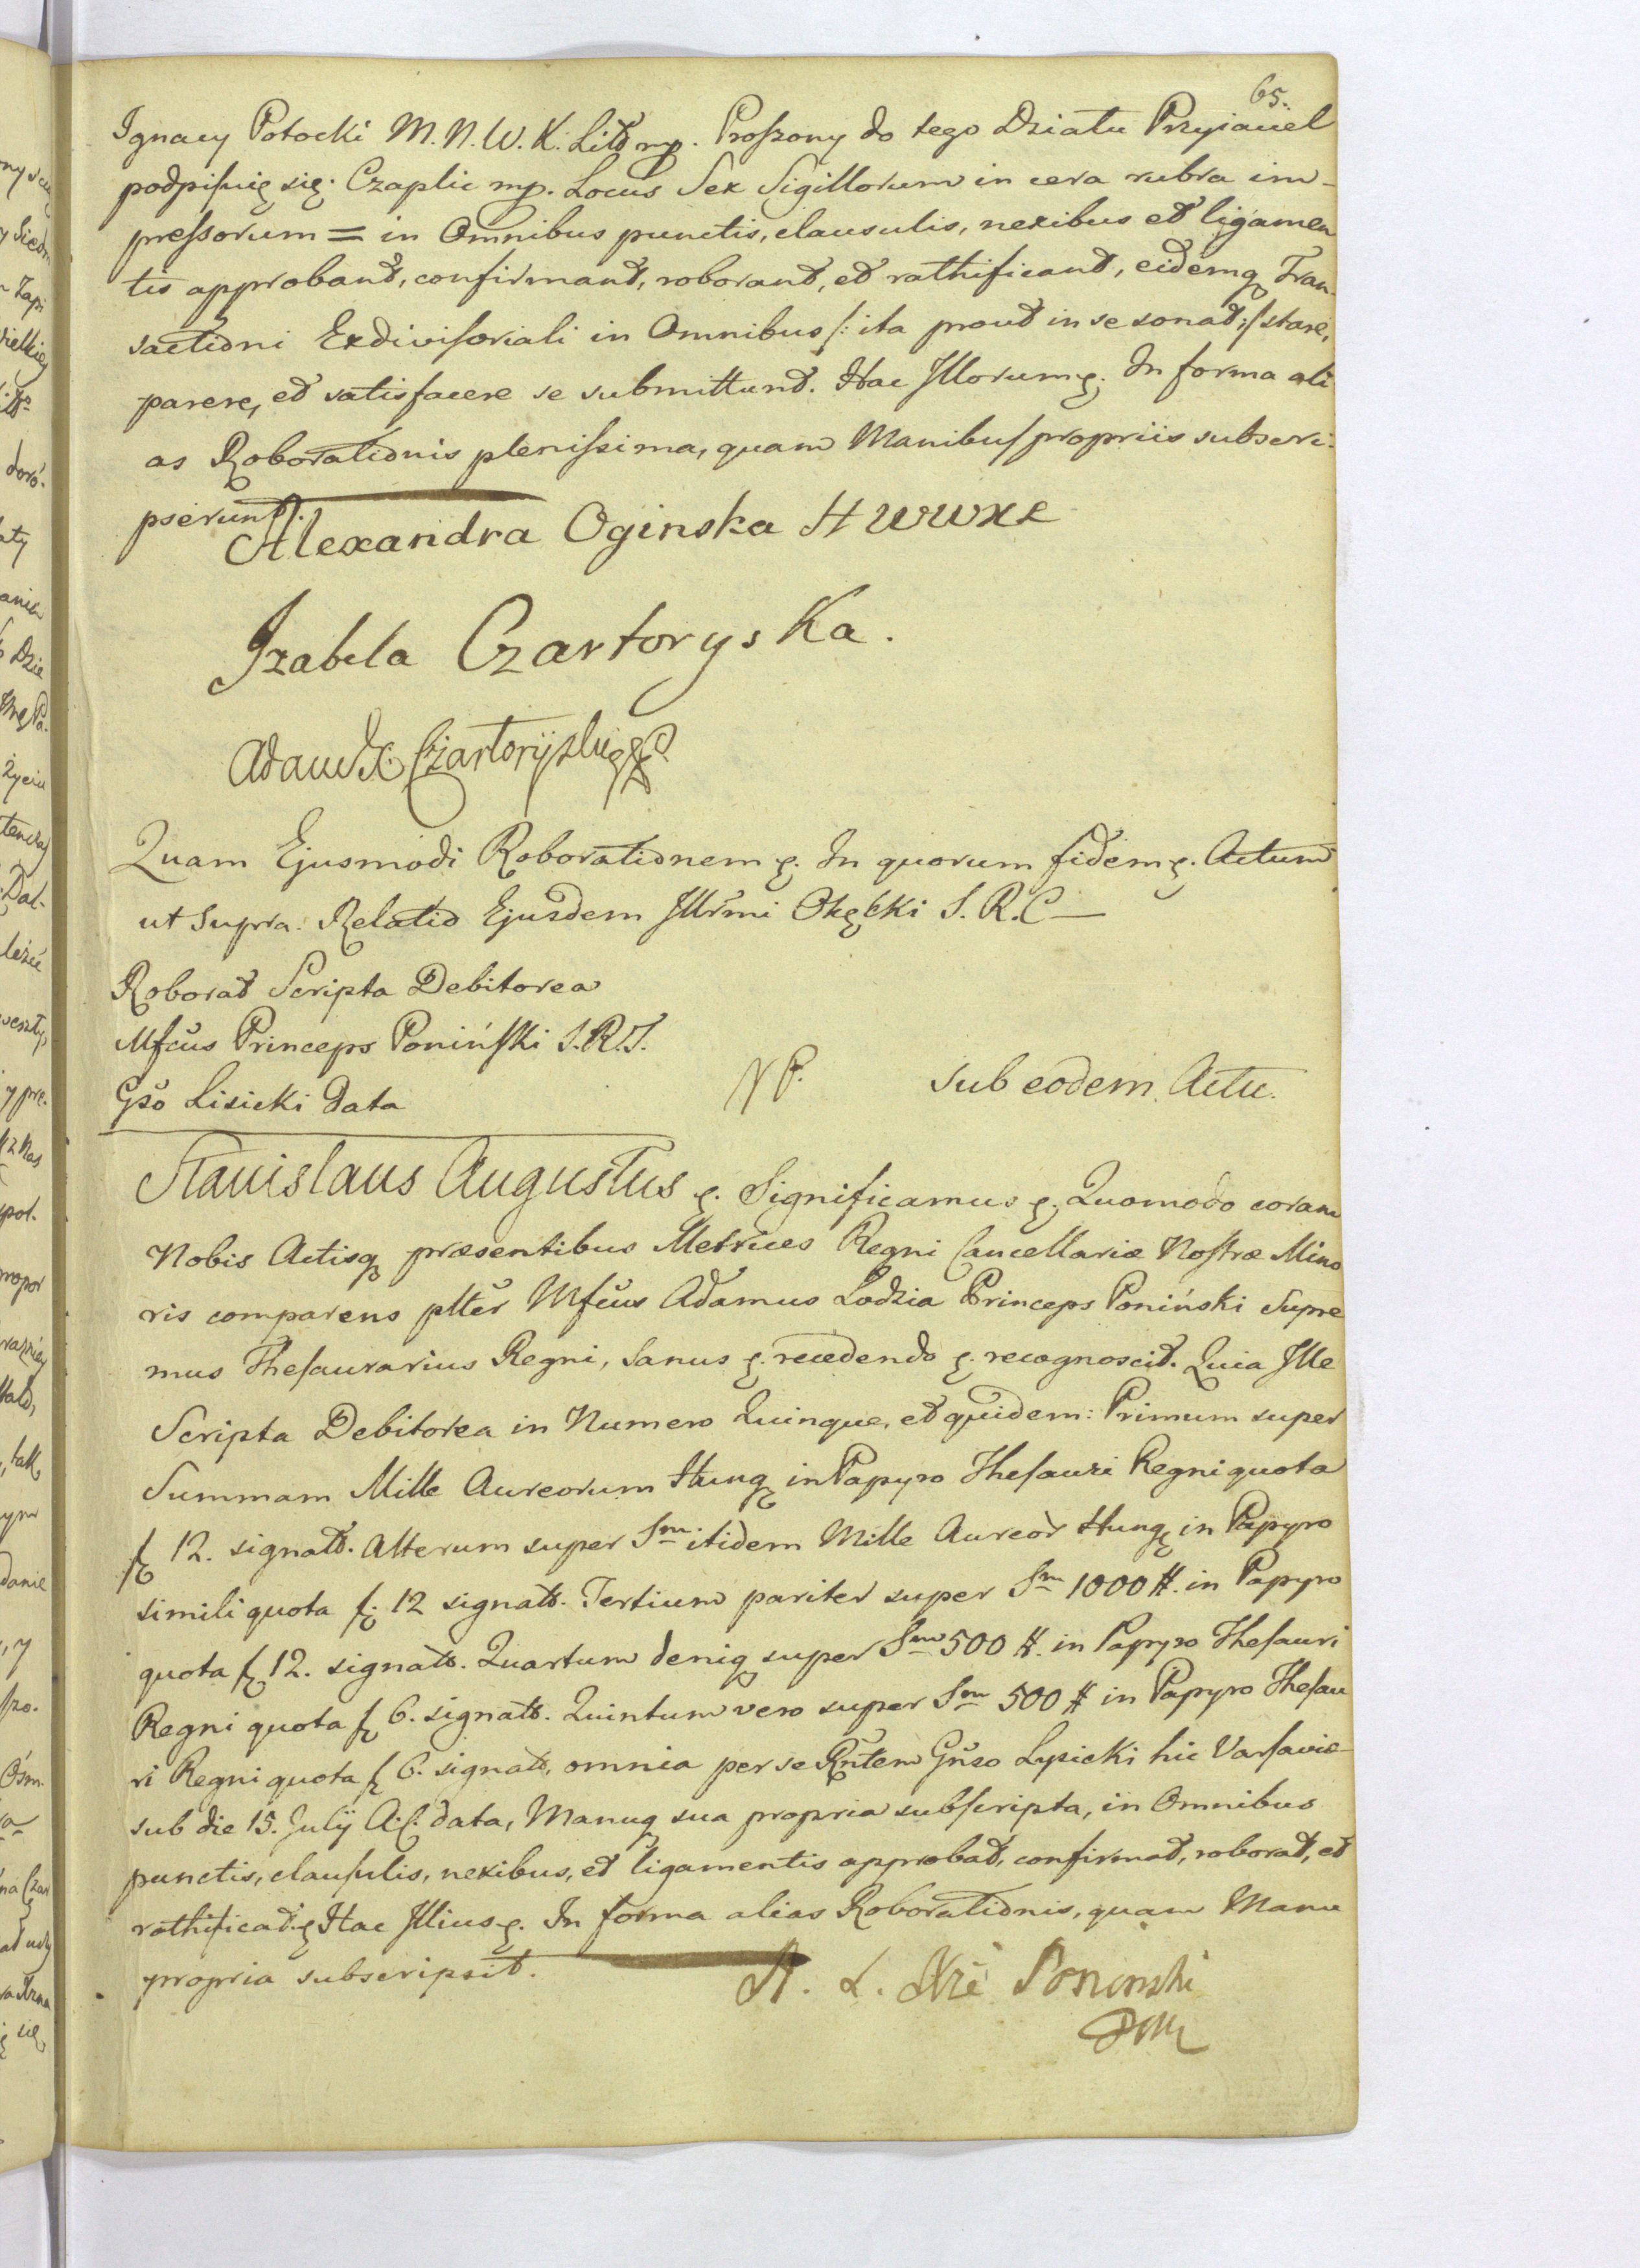 65.
Ignacy Potocki M. N. W. K. Litt mp. Proszony do tego Działu Przyiaciel
podpisuię się. Czaplic mp. Locus Sex Sigillorum in cera rubra im-
pressorum = in Omnibus punctis, clausulis, nexibus et ligamen
tis approbant, confirmant, roborant, et rathificant, eidemq Tran-
sactioni Exdivisoriali in Omnibus /: ita prout in se sonat :/ stare,
parere, et satisfacere se submittunt. Hac Illorum ę. In forma ali
as Roborationis plenissima, quam Manibus propriis subscri-
pserunt.
Alexandra Oginska H W W X L
Izabela Czartoryska.
Adam X. Czartoryski
Quam Ejusmodi Roborationem ę. In quorum fidem ę. Actum
ut Supra. Relatio Ejusdem Illrmi Okęcki S. R. C —
Roborat Scripta Debitorea
Mfcus Princeps Poniński S. R. T.
Gso Lisicki data
Sub eodem Actu.
Stanislaus Augustus ę. Significamus ę. Quomodo coram
Nobis Actisq præsentibus Metrices Regni Cancellariæ Nostræ Mino
ris comparens plter Mfcus Adamus Lodzia Princeps Poniński Supre
mus Thesaurarius Regni, Sanus ę. recedendo ę. recognoscit. Quia Ille
Scripta Debitorea in Numero Quinque, et quidem: Primum super
Summam Mille Aureorum Hung in Papyro Thesauri Regni quota
f 12. signatt. Alterum super Sm itidem Mille Aureor Hung in Papyro
simili quota f. 12 signatt. Tertium pariter super Sm 1000 #. in Papyro
quota f 12. signatt. Quartum deniq super Sm 500 #. in Papyro Thesauri
Regni quota f 6. signatt. Quintum vero super Sm 500 # in Papyro Thesau
ri Regni quota f 6. signatt, omnia per se Rntem Gnso Lysicki hic Varsaviæ
sub die 15. Julij A. C. data, Manuq sua propria subscripta, in Omnibus
punctis, clausulis, nexibus, et ligamentis approbat, confirmat, roborat, et
rathificat. ę Hac Illius ę. In forma alias Roborationis, quam Manu
propria subscripsit.
A. L. Xże Poninski